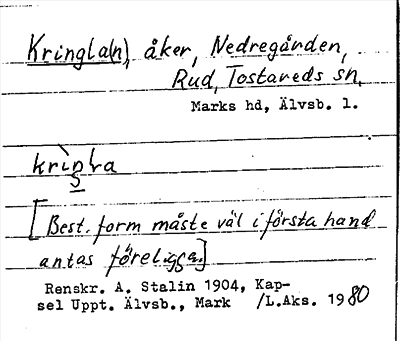 Kringla(n), åker, Nedregården,
Rud, Tostareds sn,
Marks hd, Älvsb. l.
[Best. form måste väl i första hand
antas föreligga.]
Renskr. A. Stalin 1904, Kap-
sel Uppt. Älvsb., Mark /L.Aks. 1980